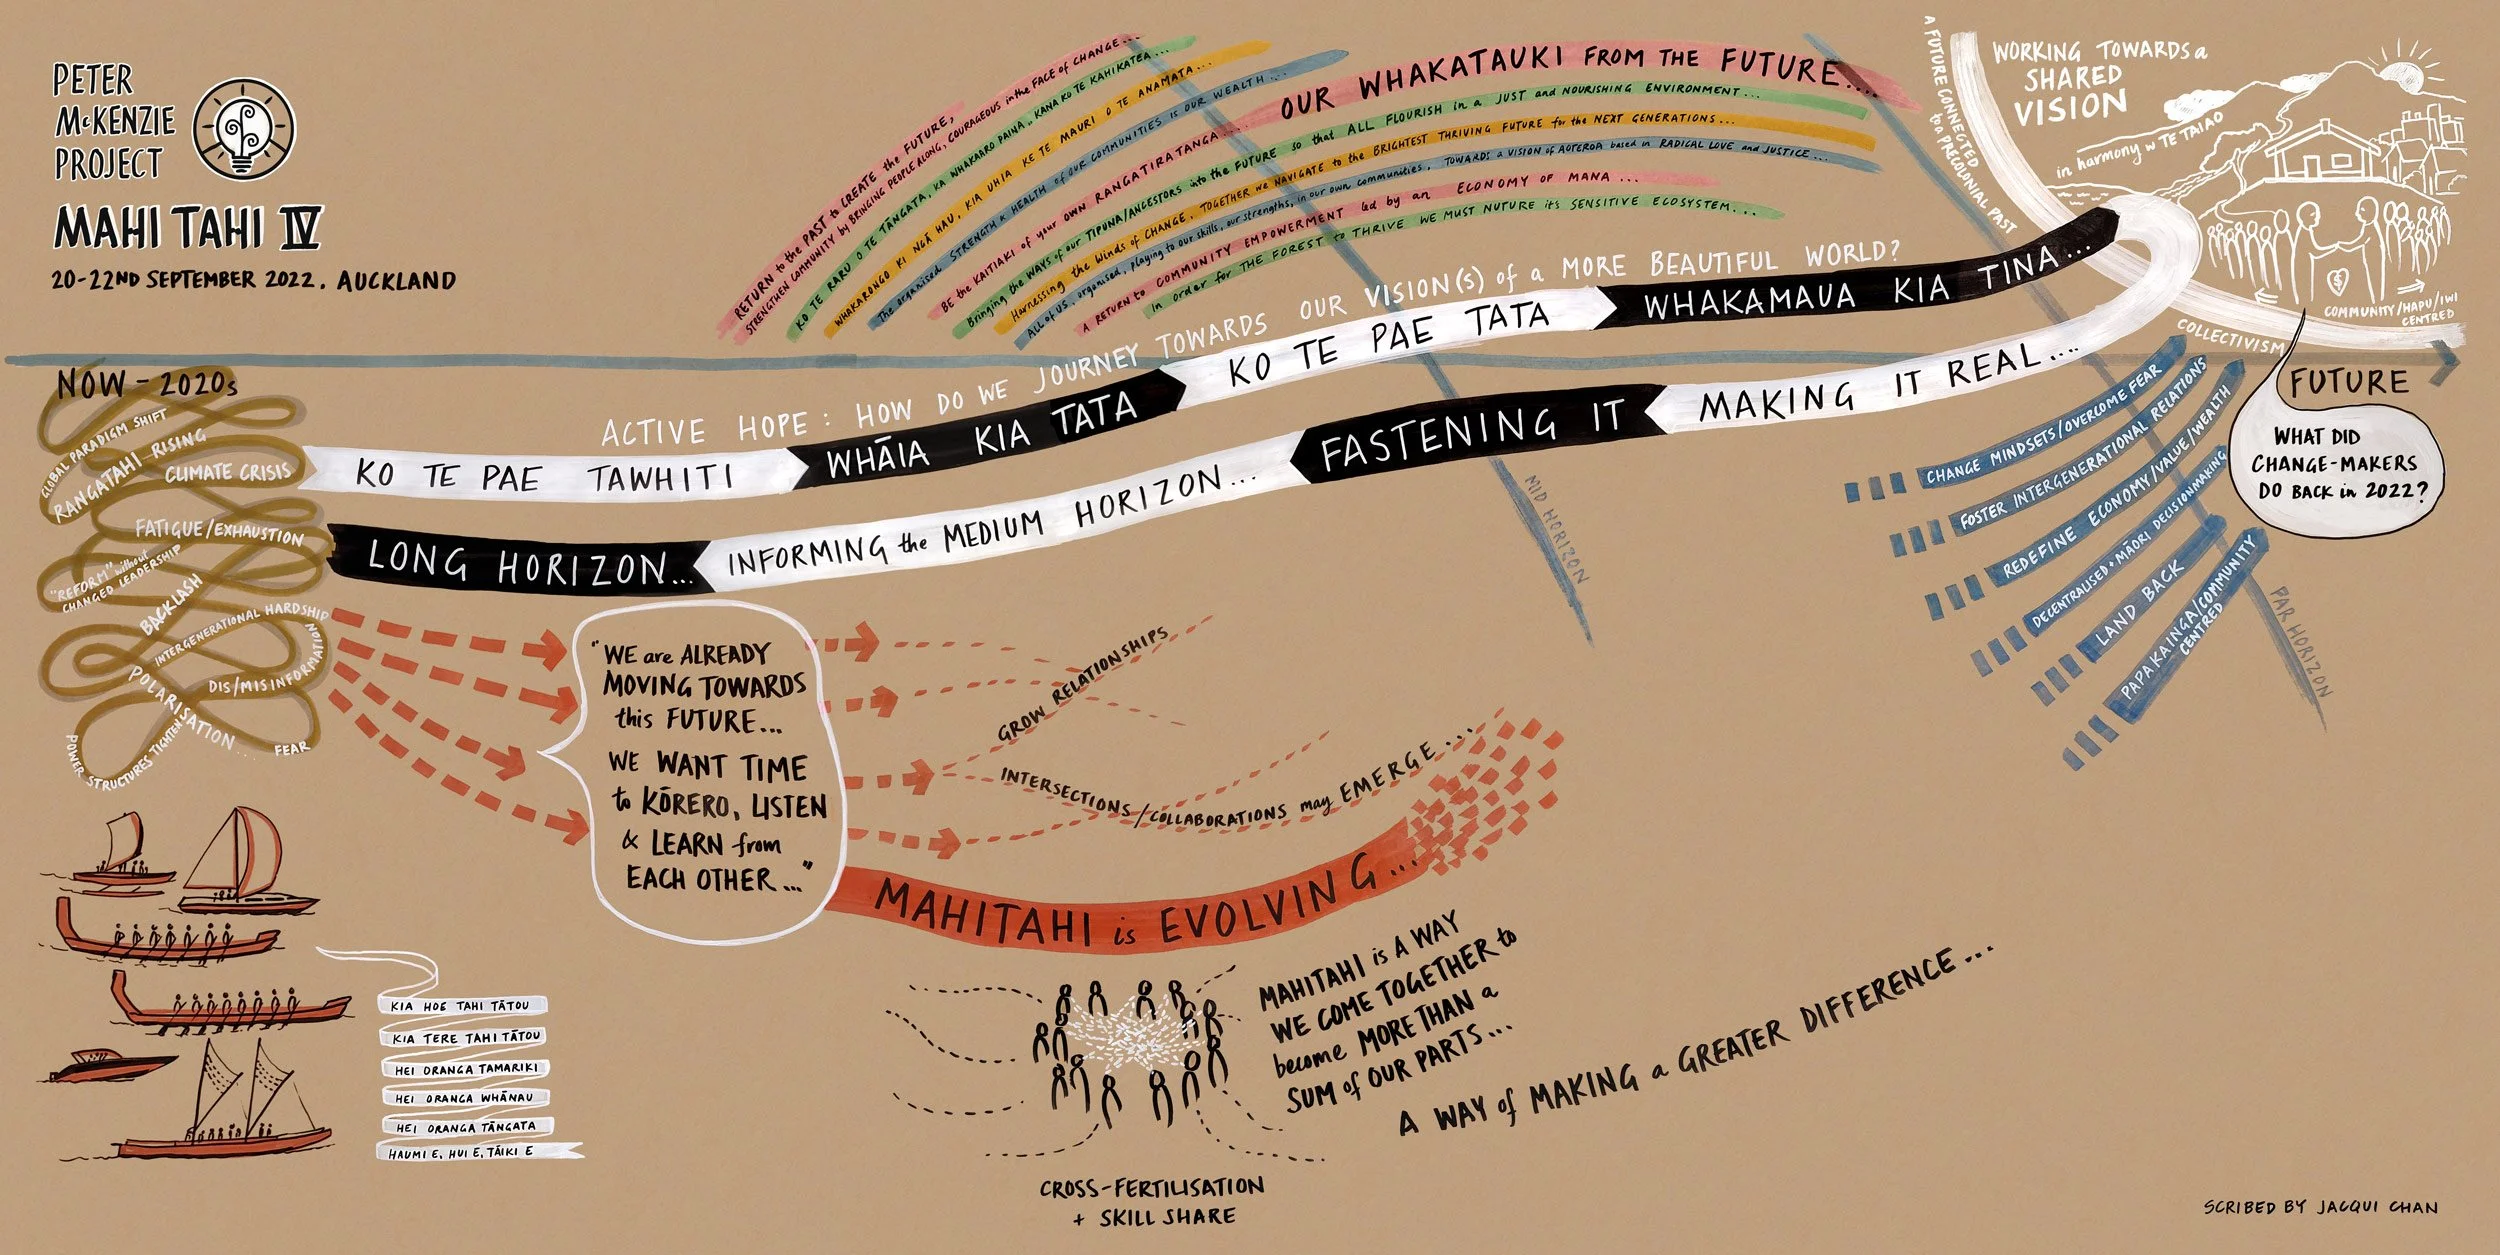 PETER
McKENZIE
PROJECT
MAHI TAHI IV
20-22ND SEPTEMBER 2022. AUCKLAND
RETURN to the PAST to CREATE the FUTURE,
STRENGTHEN COMMUNITY by BRINGING PEOPLE ALONG, COURAGEOUS in the FACE of CHANGE...
KO TE RARU O TE TĀNGATA, KA WHAKAARO PAINA, KANA KO TE KAHIKATEA...
WHAKARONGO KI NGĀ HAU, KIA UHIA KE TE MAURI O TE ANAMATA...
The organised STRENGTH & HEALTH of OUR COMMUNITIES is OUR WEALTH...
BE the KAITIAKI of your OWN RANGATIRATANGA....
OUR WHAKATAUKI FROM THE FUTURE....
Bringing the WAYS of our TIPUNA/ANCESTORS into the FUTURE so that ALL FLOURISH in a JUST and NOURISHING ENVIRONMENT...
Harnessing the Winds of CHANGE, TOGETHER we NAVIGATE to the BRIGHTEST THRIVING FUTURE for the NEXT GENERATIONS...
ALL of US, organised, playing to our skills, our strengths, in our own communities, TOWARDS a VISION of AOTEROA based in RADICAL LOVE and JUSTICE...
A RETURN to COMMUNITY EMPOWERMENT led by an ECONOMY OF MANA...
In order for THE FOREST to THRIVE WE MUST NUTURE its SENSITIVE ECOSYSTEM...
A FUTURE CONNECTED
to a PRECOLONIAL PAST
WORKING TOWARDS a
SHARED
VISION
in harmony w TE TAIAO
COMMUNITY/HAPU/IWI
CENTRED
COLLECTIVISM
$
NOW - 2020s
FUTURE
ACTIVE HOPE: HOW DO WE JOURNEY TOWARDS OUR VISION(S) of a MORE BEAUTIFUL WORLD?
KO TE PAE TAWHITI
WHĀIA KIA TATA
KO TE PAE TATA
WHAKAMAUA KIA TINA...
LONG HORIZON...
INFORMING the MEDIUM HORIZON...
FASTENING IT
MAKING IT REAL....
MID HORIZON
FAR HORIZON
GLOBAL PARADIGM SHIFT
RANGATAHI RISING
CLIMATE CRISIS
FATIGUE/EXHAUSTION
"REFORM" without
CHANGED LEADERSHIP
BACKLASH
INTERGENERATIONAL HARDSHIP
DIS/MISINFORMATION
POLARISATION...
POWER STRUCTURES TIGHTEN
FEAR
CHANGE MINDSETS/OVERCOME FEAR
FOSTER INTERGENERATIONAL RELATIONS
REDEFINE ECONOMY/VALUE/WEALTH
DECENTRALISED + MĀORI DECISIONMAKING
LAND BACK
PAPAKAINGA/COMMUNITY
CENTRED
WHAT DID
CHANGE-MAKERS
DO BACK in 2022?
"WE are ALREADY
MOVING TOWARDS
this FUTURE...
WE WANT TIME
to KŌRERO, LISTEN
& LEARN from
EACH OTHER..."
GROW RELATIONSHIPS
INTERSECTIONS/COLLABORATIONS may EMERGE...
MAHITAHI is EVOLVING...
MAHITAHI is A WAY
WE COME TOGETHER to
become MORE THAN a
SUM of OUR PARTS...
A WAY of MAKING a GREATER DIFFERENCE...
KIA HOE TAHI TĀTOU
KIA TERE TAHI TĀTOU
HEI ORANGA TAMARIKI
HEI ORANGA WHĀNAU
HEI ORANGA TĀNGATA
HAUMI E, HUI E, TĀIKI E
CROSS-FERTILISATION
+ SKILL SHARE
SCRIBED BY JACQUI CHAN